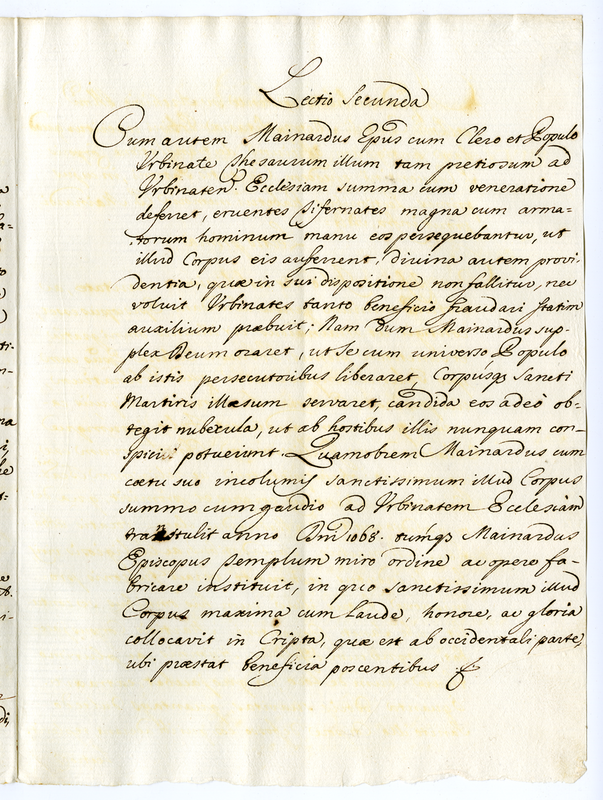 Lectio Secunda
Cum autem Mainardus Epũs cum Clero et Populo
Urbinate Thesaurum illum tam pretiosum ad
Urbinaten. Ecclesiam summa cum veneratione
deferret, eruentes Tifernates magna cum arma-
torum hominum manu eos persequebantur, ut
illud Corpus eis auferrent. Divina autem provi-
dentia, quæ in sui dispositione non fallitur, nec
voluit Urbinates tanto beneficio fraudari statim
auxilium præbuit; Nam dum Mainardus sup-
plex Deum oraret, ut se cum universo Populo
ab istis persecutoribus liberaret, Corpusq Sancti
Martiris illæsum servaret, candida eos adeò ob-
tegit nubecula, ut ab hostibus illis nunquam con-
spici potuerint Quamobrem Mainardus cum
cœtu suo incolumis sanctissimum illud Corpus
summo cum gaudio ad Urbinatem Ecclesiam
transtulit anno Dnĩ 1068. tumq Mainardus
Episcopus Templum miro ordine ac opere fa-
bricare instituit, in quo sanctissimum illud
Corpus maxima cum Laude, honore, ac gloria
collocavit in Cripta, quæ est ab occidentali parte,
ubi præstat beneficia poscentibus